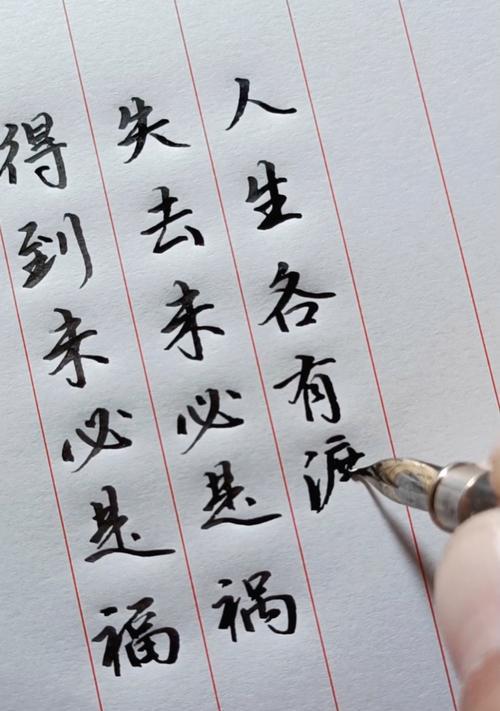 得到未必是福
失去未必是祸
人生各有渡